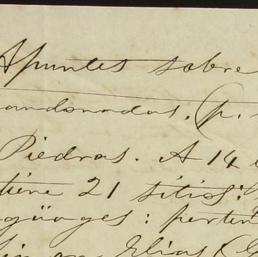 Apuntes sobre
andonadas. (p.
Piedras. A 14
tiene 21 sitios:
güages: perten
Elias (G